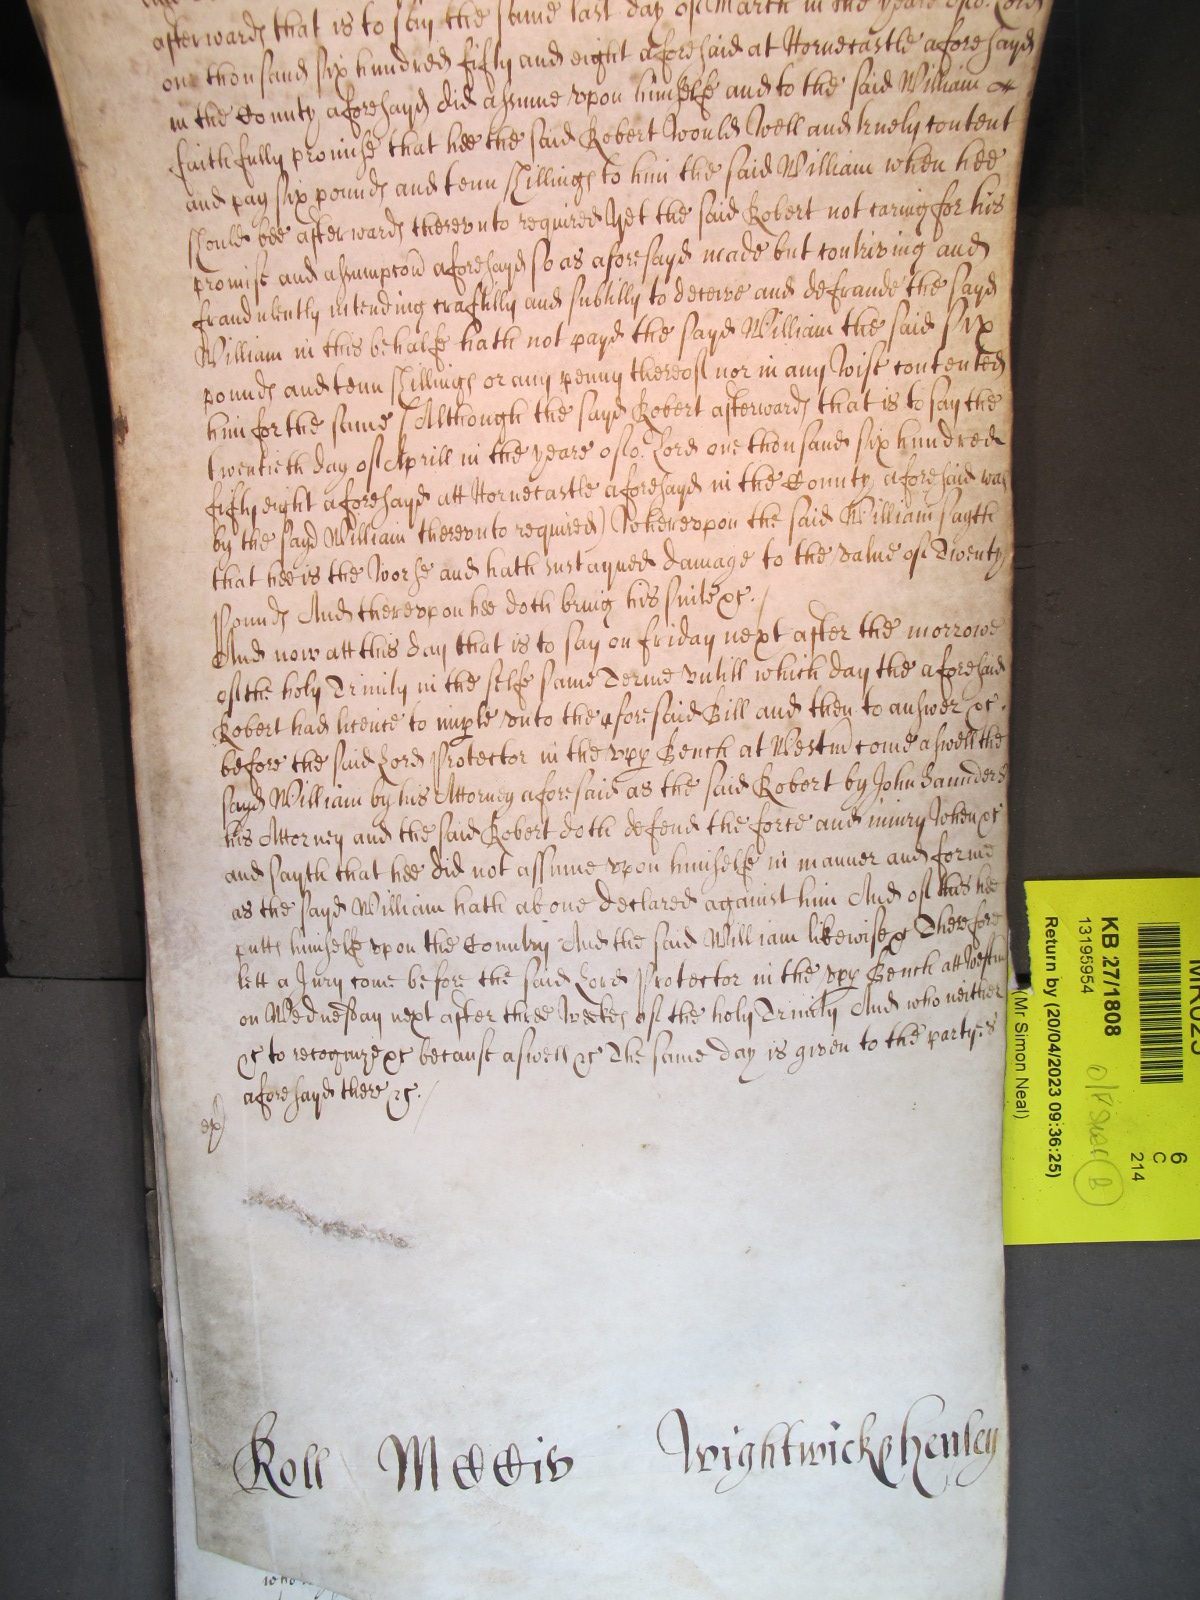 afterwards that is to say the same last day of March in the yeare of o.r Lord
one thousand six hundred fifty and eight aforesaid at Hornecastle aforesayd
in the County aforesayd did assume vpon himselfe and to the said William
faithfully promise that hee the said Robert Would Well and truely content
and pay six pounds and tenn shillings to him the said William when hee
should bee afterwards therevnto required Yet the said Robert not caring for his
promise and assumpcon aforesayd so as aforesayd made but contriving and
fraudulently intending craftilly and subtilly to deceive and defraude the sayd
William in this behalfe hath not payd the sayd William the said six
pounds and tenn shillings or any penny thereof nor in any wise contented
him for the same (Although the sayd Robert afterwards that is to say the
twentieth day of Aprill in the yeare of o.r Lord one thousand six hundred
fifty eight aforesayd att Hornecastle aforesayd in the County aforesaid was
by the sayd William therevnto required) Wherevpon the said William sayth
that hee is the worse and hath sustayned damage to the value of Twenty
Pounds And therevpon hee doth bring his suite &c. /
And now att this day that is to say on friday next after the morrowe
of the holy Trinity in the selfe same Terme vntill which day the aforesaid
Robert had licence to imple vnto the aforesaid Bill and then to answer &c.
before the said Lord Protector in the vpp Bench at Westm come aswell the
sayd William by his Attorney aforesaid as the said Robert by John Saunders
his Attorney and the said Robert doth defend the force and iniury when &c
and sayth that hee did not assume vpon himselfe in manner and forme
as the sayd William hath aboue declared against him And of this hee
putts himselfe vpon the Countrey And the said William likewise &c Therefore
lett a Jury come before the said Lord Protector in the vpp Bench att Westm
on Wednesday next after three Weekes of the holy Trinity And who neither
&c to recognize &c because aswell &c The same day is given to the partyes
aforesayd there &c. /
Roll MCCCiv Wightwick & henley
KB 27/1808
13195954
Return by (20/04/2023 09:36:25)
(Mr Simon Neal)
6
C
214
B